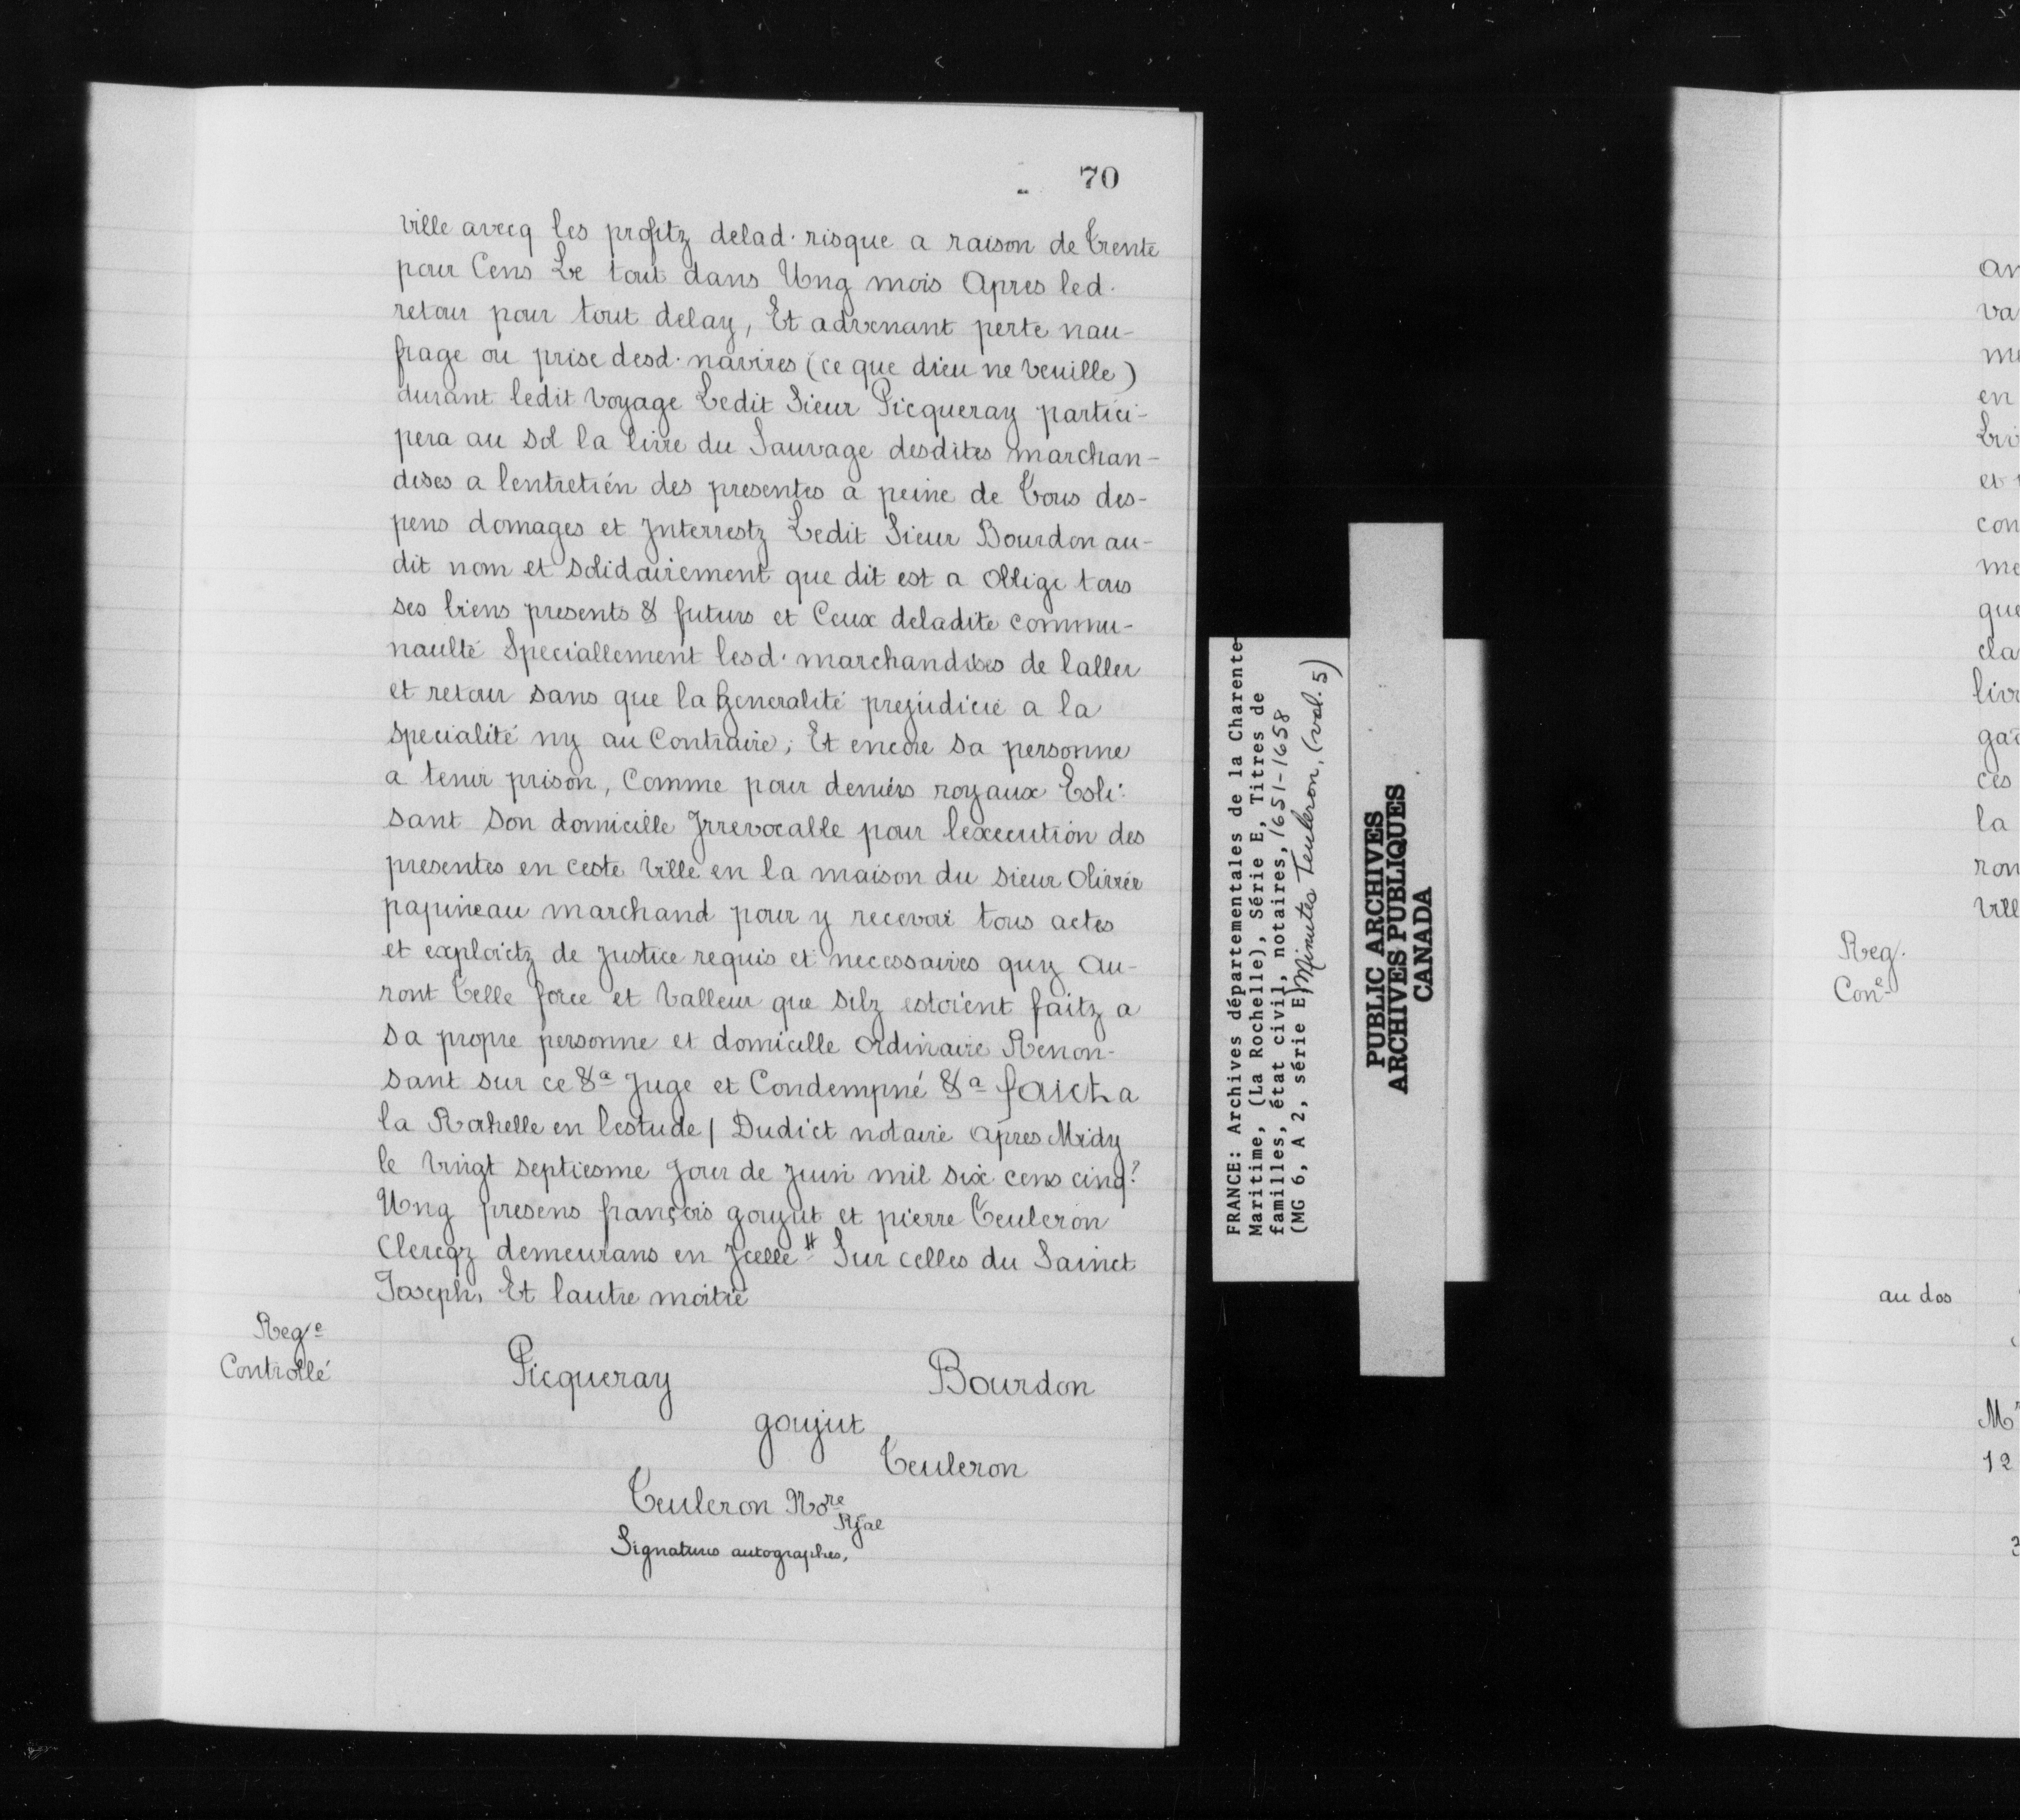 70
ville avecq les profitz delad. risque a raison de trente
pour Cens Le tout dans Ung mois Apres led.
retour pour tout delay, Et advenant perte nau-
frage ou prise desd. navires (ce que dieu ne veuille)
durant ledit voyage Ledit Sieur Picqueray partici-
pera au sol la livre du Sauvage desdites marchan-
dises a lentretien des presentes a peine de tous des-
pens domages et Interrestz Ledit Sieur Bourdon au-
dit nom et solidairement que dit est a obligé tous
ses biens presents & futurs et Ceux deladite commu-
naulté Speciallement lesd. marchandises de laller
et retour sans que la generalité prejudicie a la
specialité ny au Contraire; Et encore sa personne
a tenir prison, Comme pour deniers royaux Esli-
sant son domicille Irrevocable pour lexecution des
presentes en ceste ville en la maison du sieur Olivier
papineau marchand pour y recevoir tous actes
et exploictz de Justice requis et necessaires quy au-
ront telle force et valleur que silz estoient faitz a
sa propre personne et domicille ordinaire Renon-
sant sur ce &a Jugé et Condempné &a faict a
la Rochelle en lestude / Dudict notaire apres Midy
le vingt septiesme Jour de Juin mil six cens cinq?
Ung presens françois goujut et pierre Teuleron
Clercqz demeurans en Icelle # Sur celles du Sainct
Joseph. Et lautre moitié
Rege
Controllé
Picqueray Bourdon
goujut
Teuleron
Teuleron Nore
Rjal
Signatures autographes.
FRANCE: Archives départementales de la Charente-
Maritime, (La Rochelle), Série E, Titres de
familles, état civil, notaires, 1651-1658
(MG 6, A 2, série E) Minutes Teuleron, (vol. 5)
PUBLIC ARCHIVES
ARCHIVES PUBLIQUES
CANADA
an
va
me
en
et
con
me
que
cla
livr
gai
ces
la
ron
vill
Reg.
Cone
au dos
Mr
12
3